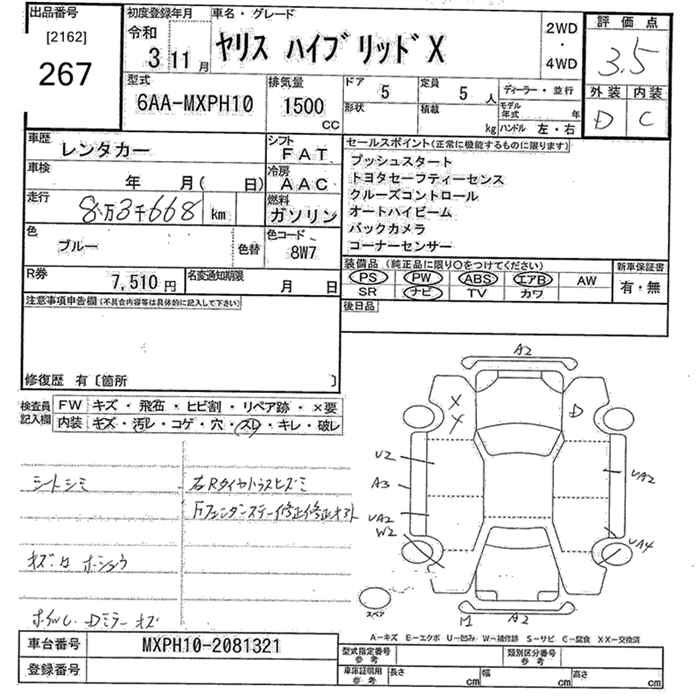 出品番号
[2162]
267
初度登録年月
令和
3 11月
車名・グレード
ヤリス ハイブリッドX
2WD
・
4WD
評価点
3.5
外装 内装
D C
型式
6AA-MXPH10
排気量
1500
CC
ドア 5
形状
定員 5 人
積載 kg
ディーラー・並行
モデル年式 年
ハンドル 左・右
車歴 レンタカー
シフト FAT
車検 年 月( 日)
冷房 AAC
走行 8万3千668 km
燃料 ガソリン
色 ブルー
色替
色コード 8W7
R券 7,510円
名変通知期限 月 日
セールスポイント(正常に機能するものに限ります)
プッシュスタート
トヨタセーフティーセンス
クルーズコントロール
オートハイビーム
バックカメラ
コーナーセンサー
装備品(純正品に限り○をつけてください)
PS PW ABS エアB AW
SR ナビ TV カワ
新車保証書
有・無
後日品
注意事項申告欄(不具合内容等は具体的に記入して下さい)
修復歴 有〔箇所 〕
検査員記入欄
FW キズ・飛石・ヒビ割・リペア跡・×要
内装 キズ・汚レ・コゲ・穴・スレ・キレ・破レ
シートシミ
A2
X
Y
D
U2
A3
UA2
W2
UA2
UA4
スペア
M
A2
A-キズ E-エクボ U-凹み W-補修跡 S-サビ C-腐食 XX-交換済
車台番号 MXPH10-2081321
登録番号
型式指定番号参考
類別区分番号参考
車庫証明用参考
長さ cm
幅 cm
高さ cm